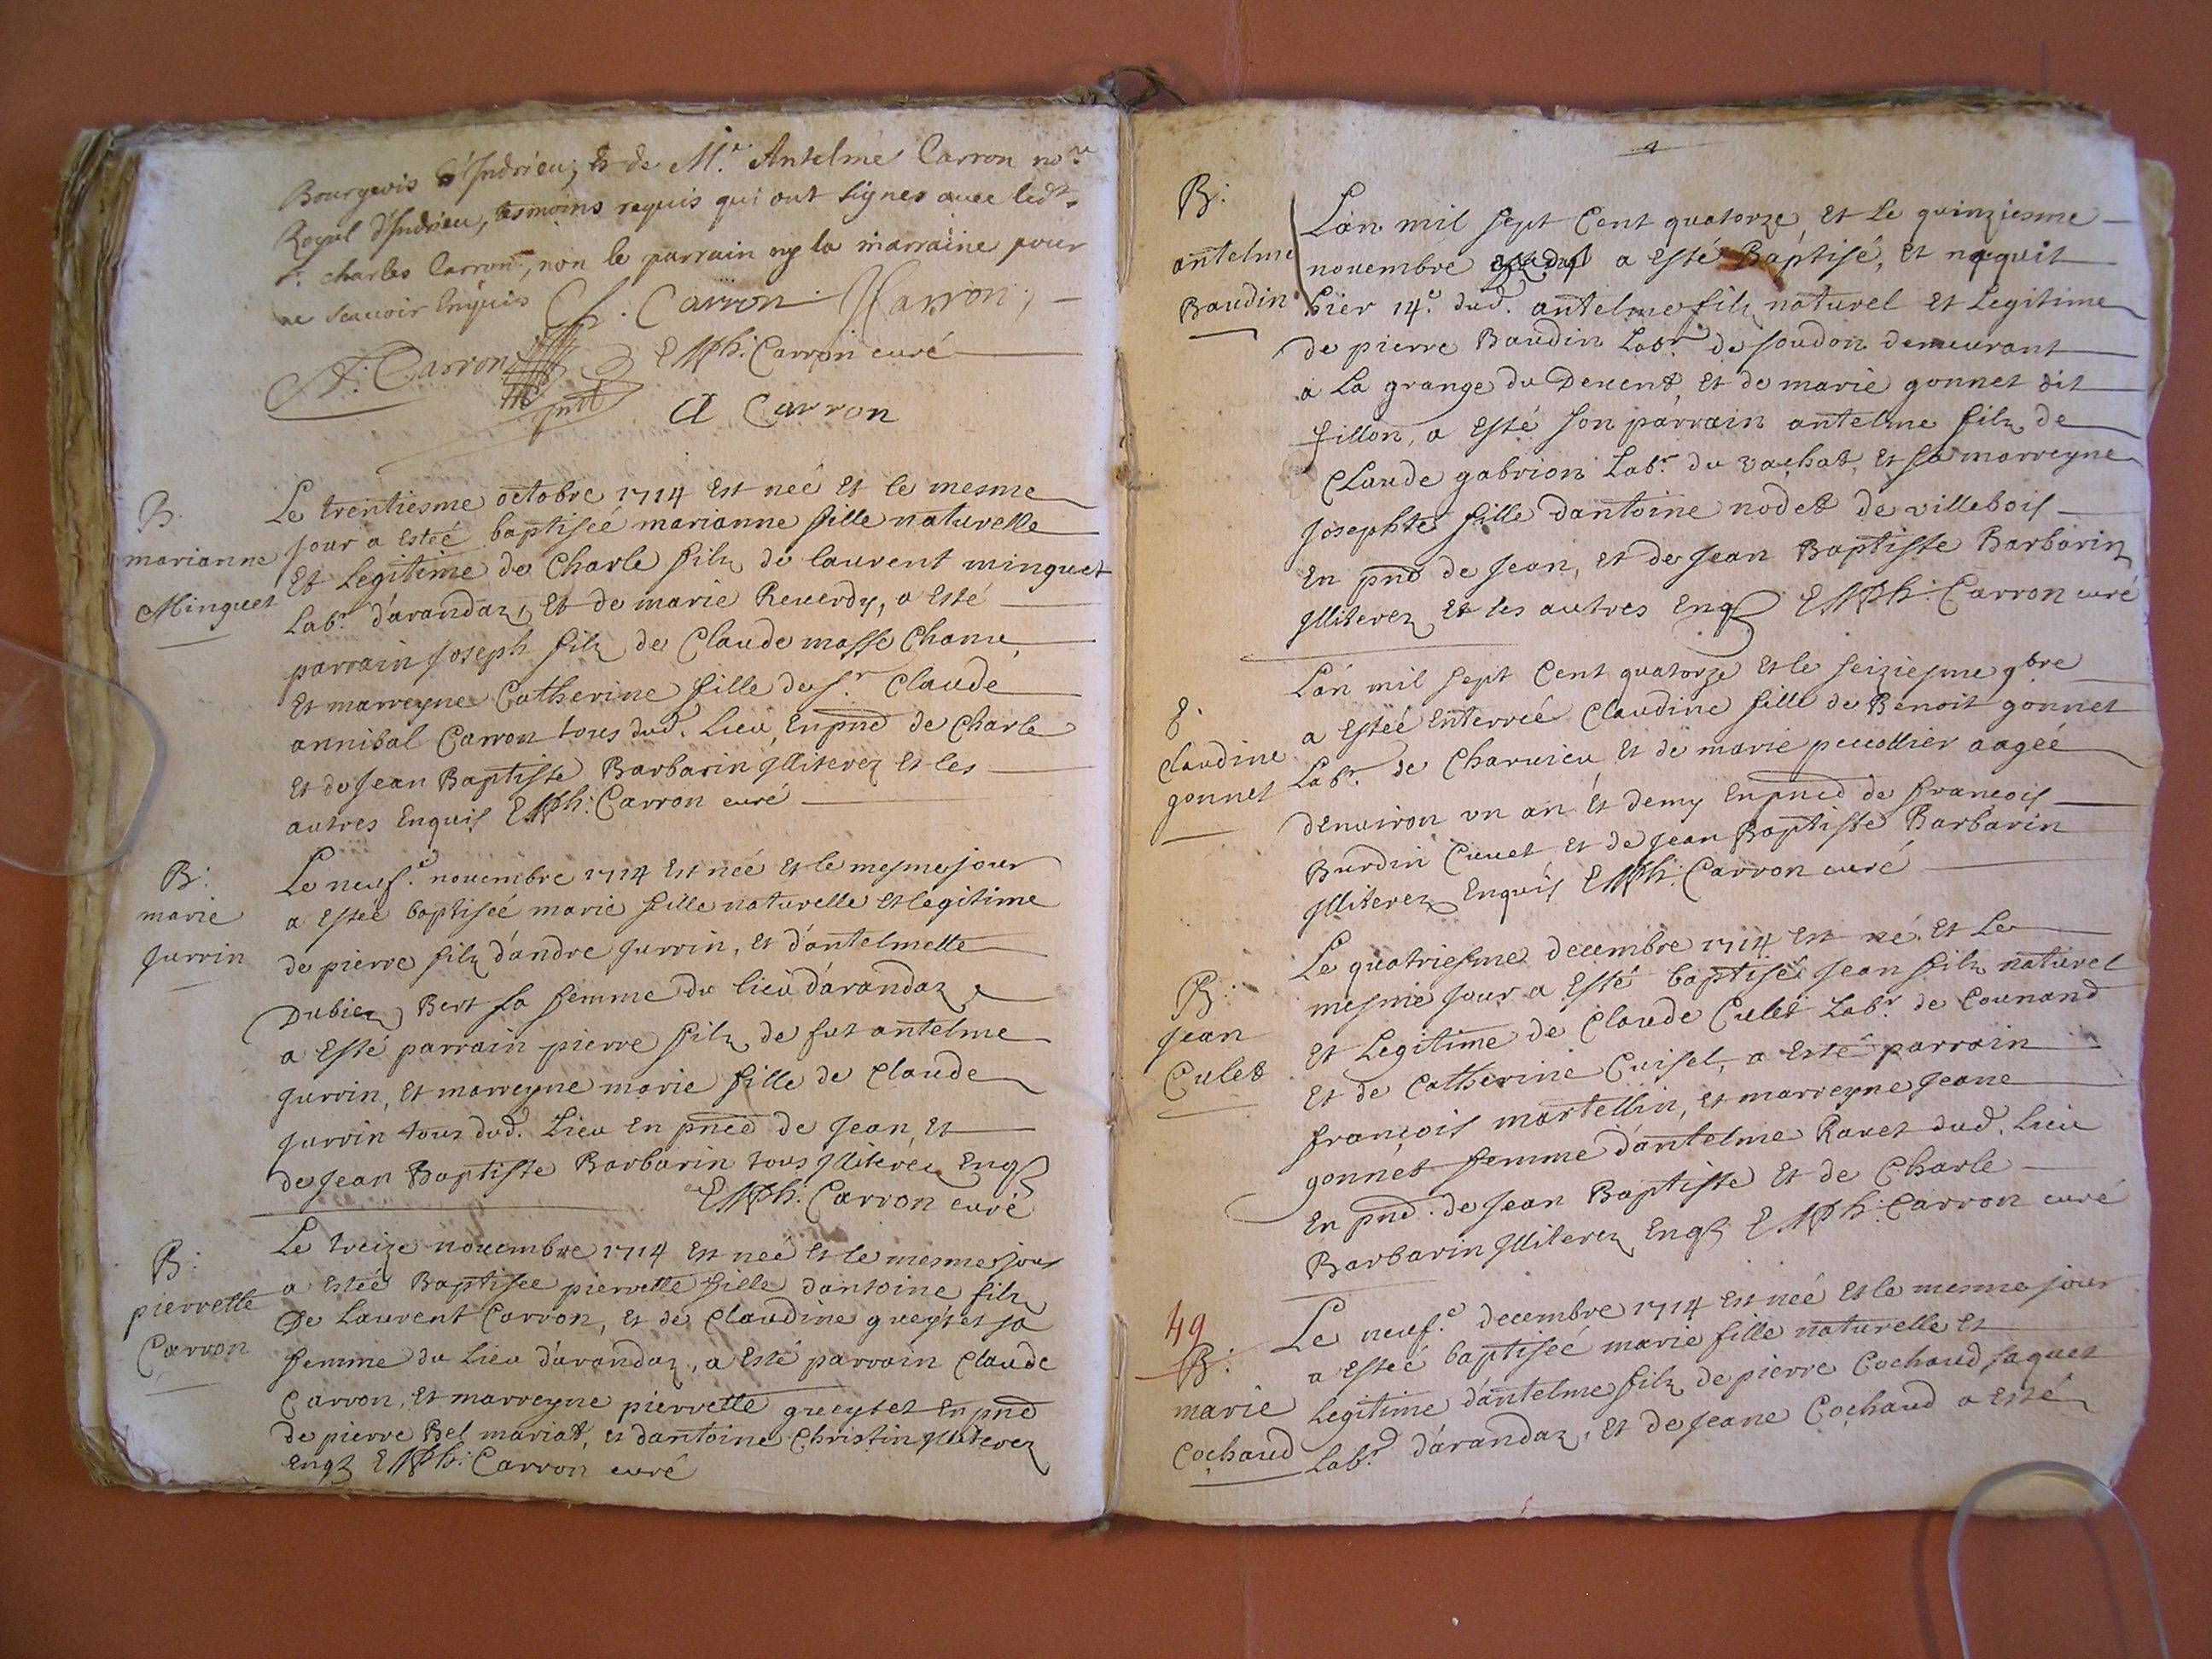 Bourgeois d'Indrieu, & de M.r Antelme Carron no.re
Royal d'Indrieu, tesmoins requis qui ont signes avec led.t
s.r charles Carron, non le parrain ny la marraine pour
ne scauoir Enquis Ch. Carron Carron
A. Carron EMPh: Carron curé
A Carron
B.
marianne
Minguet
Le trentiesme octobre 1714 Est neé Et le mesme
Jour a esteé baptiseé marianne fille naturelle
Et Legitime de Charle filz de laurent minguet
Lab.r d'arandaz, Et de marie Reuerdy, a Esté
parrain Joseph filz de Claude masse Chanu,
Et marreyne Catherine fille du s.r Claude
annibal Carron tous dud. Lieu, En pnce de Charle
Et de Jean Baptiste Barbarin Jlliterez Et les
autres Enquis EMPh: Carron curé
B:
marie
Jurrin
Le neuf.e nouembre 1714 Est neé Et le mesme jour
a Esteé baptiseé marie fille naturelle Et legitime
de pierre filz d'andre Jurrin, Et d'antelmette
Dubiez Bert sa femme du lieu d'arandaz
a Esté parrain pierre filz de fut antelme
Jurrin, Et marreyne marie fille de Claude
Jurrin tous dud. Lieu En pnce de Jean, Et
de Jean Baptiste Barbarin tous Jlliterez Enqs
EMPh: Carron curé
B:
pierrette
Carron
Le treize nouembre 1714 Est neé Et le mesme jour
a Esteé Baptisee pierrette fille dantoine filz
De Laurent Carron, Et de Claudine gueytet sa
femme du Lieu d'arandaz, a Esté parrain Claude
Carron, Et marreyne pierrette gueytet En pnce
de pierre Bel mariat, et dantoine Christin Jlliterez
Enqs EMPh: Carron curé
B:
antelme
Baudin
L'an mil sept Cent quatorze, Et Le quinziesme
nouembre a Esté Baptisé, Et naquit
hier 14.e dud. antelme filz naturel Et Legitime
de pierre Baudin Lab.r de soudon demeurant
a La grange du Deuent, Et de marie gonnet dit
fillon, a Esté son parrain antelme filz de
Claude gabrion Lab.r du vachat, Et sa marreyne
Josephte fille dantoine nodet de villebois
En pnce de Jean, Et de Jean Baptiste Barbarin
Jlliterez Et les autres Enqs EMPh: Carron curé
8.
Claudine
gonnet
L'an mil sept Cent quatorze Et le seiziesme 9bre
a Esteé Enterreé Claudine fille de Benoit gonnet
Lab.r de Charuieu Et de marie pecollier aageé
denuiron vn an Et demy En pnce de francois
Burdin Cuuet Et de Jean Baptiste Barbarin
Jlliterez Enquis EMPh: Carron curé
B:
Jean
Culet
Le quatriesme decembre 1714 Est né. Et Le
mesme Jour a Esté baptisé Jean filz naturel
Et Legitime de Claude Culet Lab.r de Counand
Et de Catherine Cuisel, a Esté parrain
françois martellin, Et marreyne Jeane
gonnet femme d'antelme Rauet dud. Lieu
En pnce. de Jean Baptiste Et de Charle
Barbarin Jlliterez Enqs EMPh: Carron curé
49
B:
marie
Cochaud
Le neuf.e decembre 1714 Est neé Et le mesme jour
a Esteé baptiseé marie fille naturelle Et
Legitime d'antelme filz de pierre Cochaud saquet
Lab.r d'arandaz, Et de Jeane Cochaud a Esté